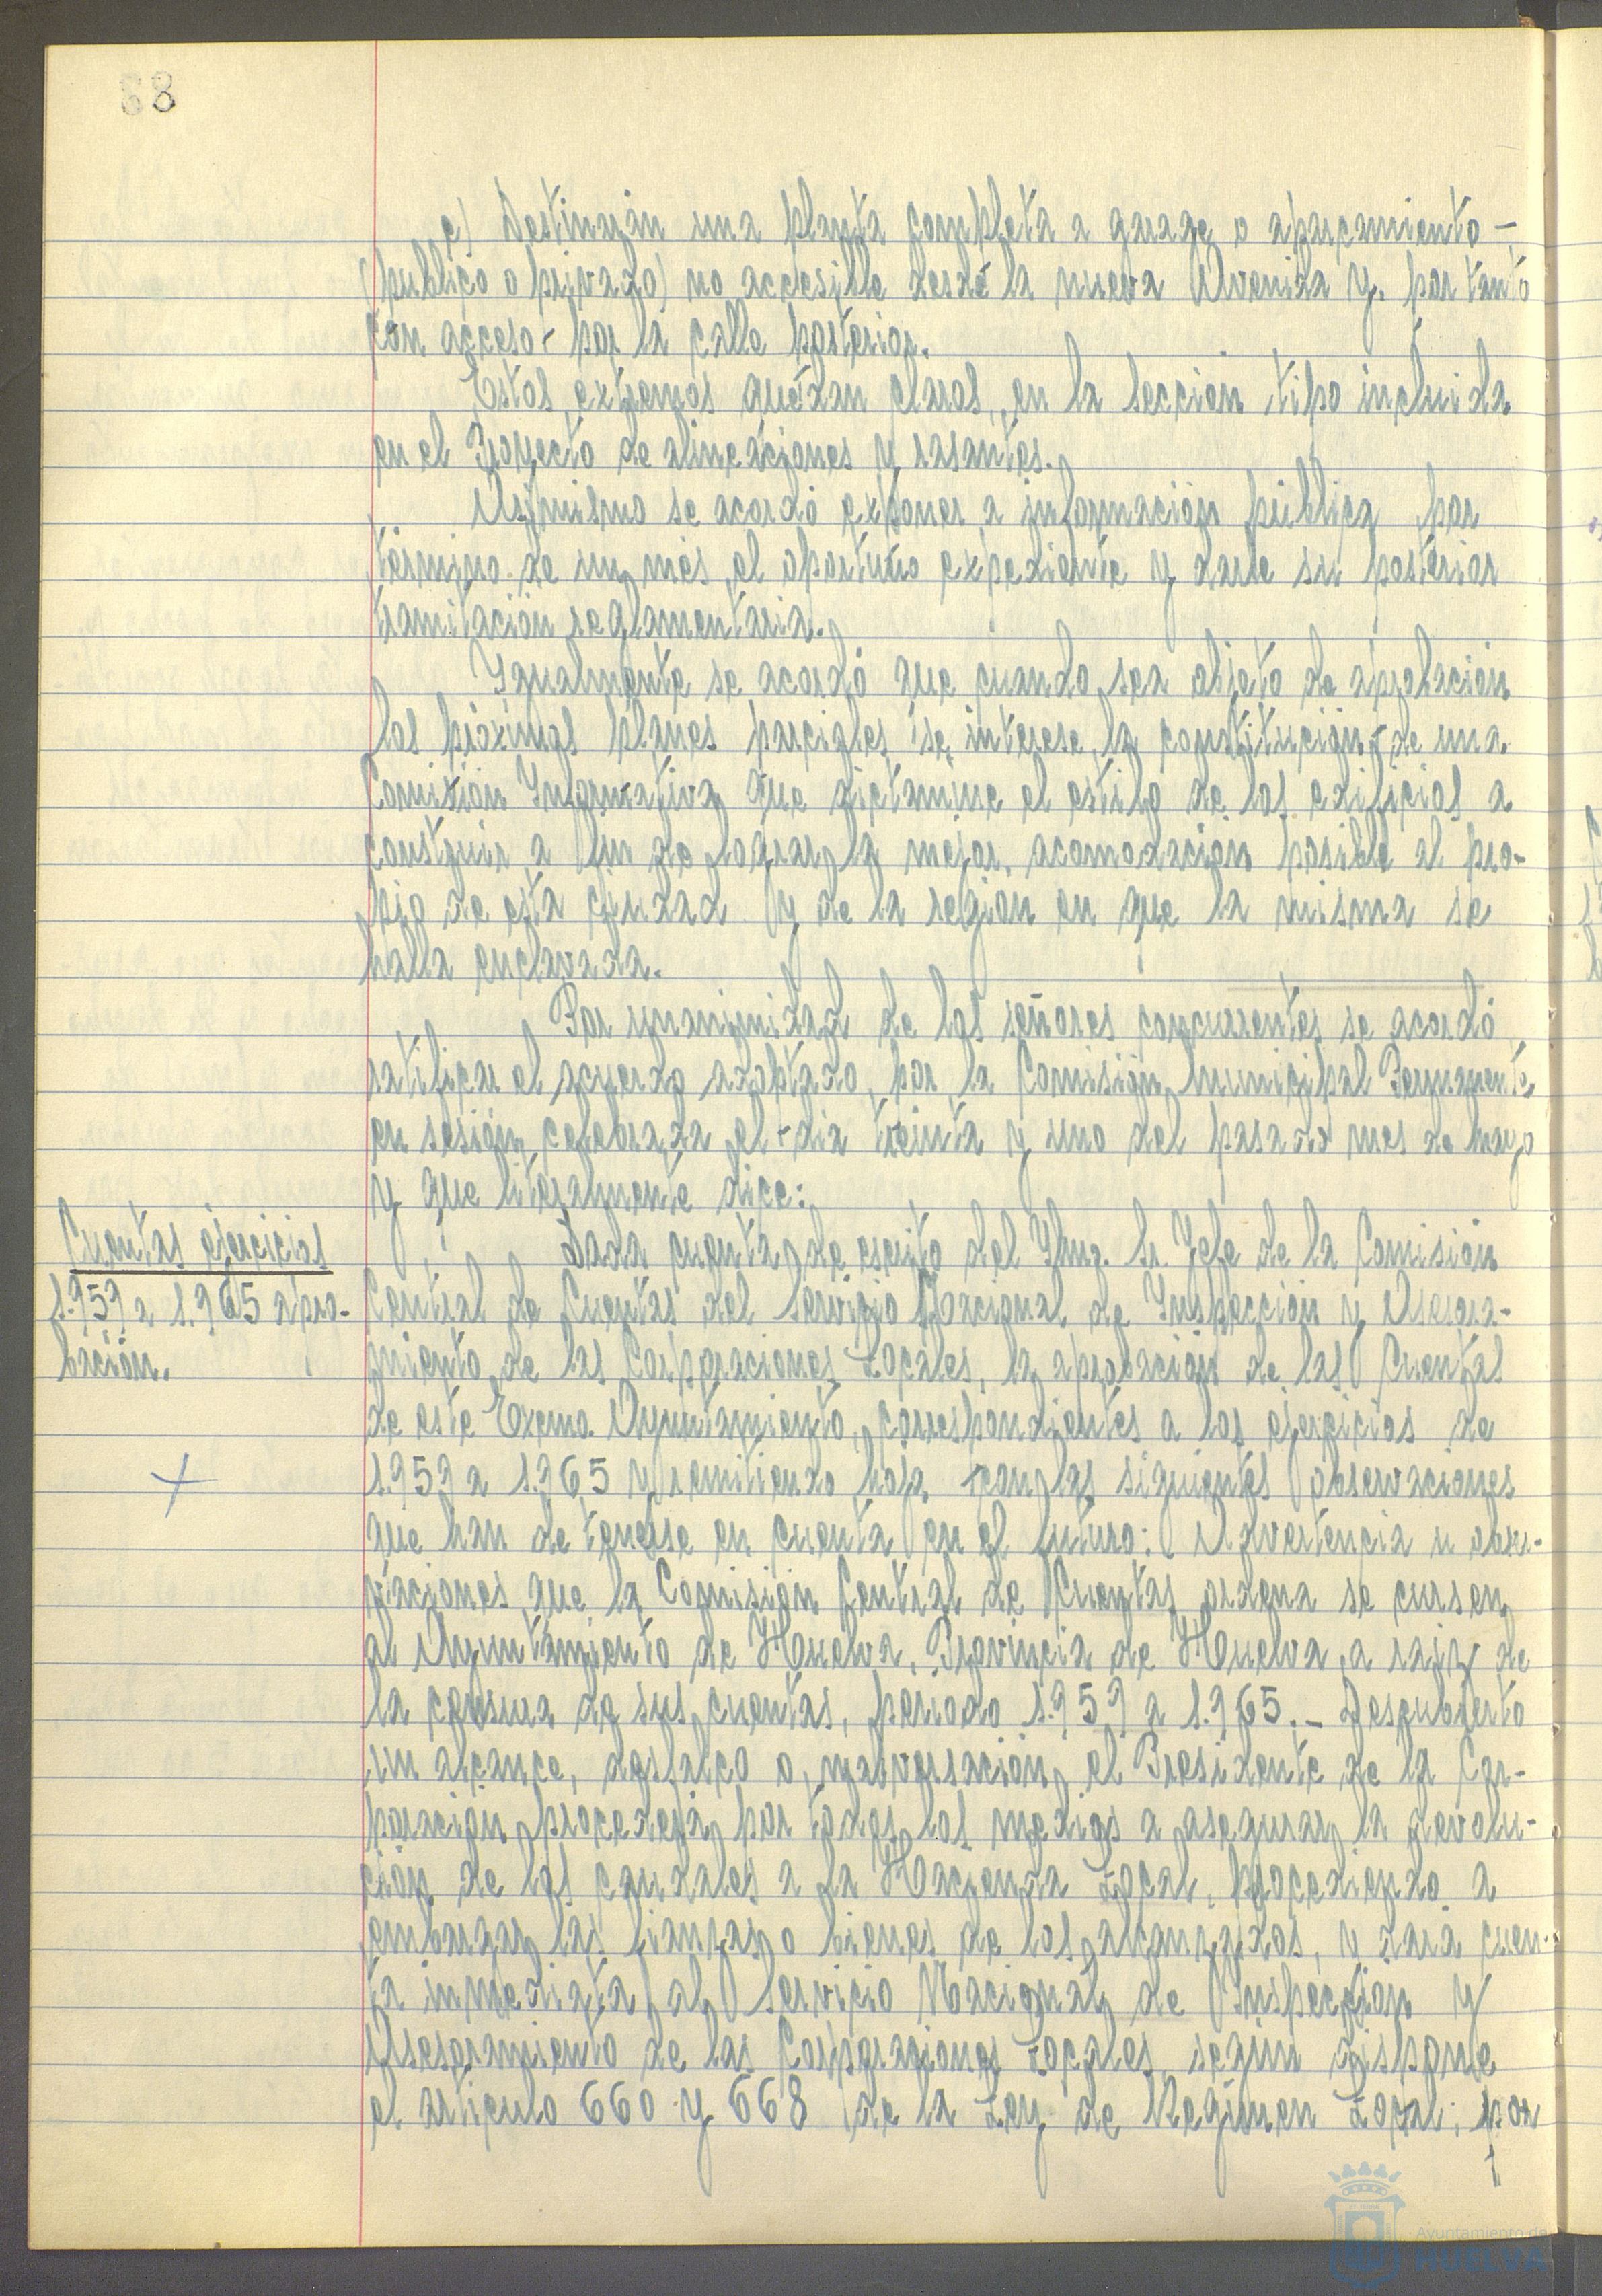 68
c) Destinarán una planta completa a garage o aparcamiento -
(público o privado) no accesible desde la nueva Avenida y. por tanto
con acceso - por la calle posterior.
Estos extremos quedan claros, en la sección tipo incluida
en el Proyecto de alineaciones y rasantes.
Asimismo se acordó exponer a información pública por
término de un mes el oportuno expediente y darle su posterior
tramitación reglamentaria.
Igualmente se acordó que cuando sea objeto de aprobación
los próximos planes parciales se interese la constitución de una
Comisión Informativa que dictamine el estilo de los edificios a
construir a fin de lograr la mejor acomodación posible al pro-
pio de esta ciudad y de la región en que la misma se
halla enclavada.
Por unanimidad de los señores concurrentes se acordó
ratificar el acuerdo adoptado, por la Comisión Municipal Permanente
en sesión celebrada el día treinta y uno del pasado mes de mayo
y que literalmente dice:
Cuentas ejercicios
1.959 a 1.965 apro-
bación.
Dada cuenta de escrito del Ilmo. Sr. Jefe de la Comisión
Central de Cuentas del Servicio Nacional de Inspección y Asesora-
miento de las Corporaciones Locales, la aprobación de las Cuentas
de este Excmo. Ayuntamiento, correspondientes a los ejercicios de
1.959 a 1.965 y remitiendo hoja con las siguientes observaciones
que han de tenerse en cuenta en el futuro: Advertencia u obser-
vaciones que la Comisión Central de Cuentas ordena se cursen
al Ayuntamiento de Huelva, Provincia de Huelva, a raiz de
la censura de sus cuentas, período 1.959 a 1.965.- Descubierto
un alcance, desfalco o malversación, el Presidente de la Cor-
poración procederá por todos los medios a asegurar la devolu-
ción de los caudales a la Hacienda Local, procediendo a
embargar las fianzas o bienes de los alcanzados, y dará cuen-
ta inmediata al Servicio Nacional de Inspección y
Asesoramiento de las Corporaciones Locales, según dispone
el artículo 660 y 668 de la Ley de Régimen Local; por
Ayuntamiento de
HUELVA